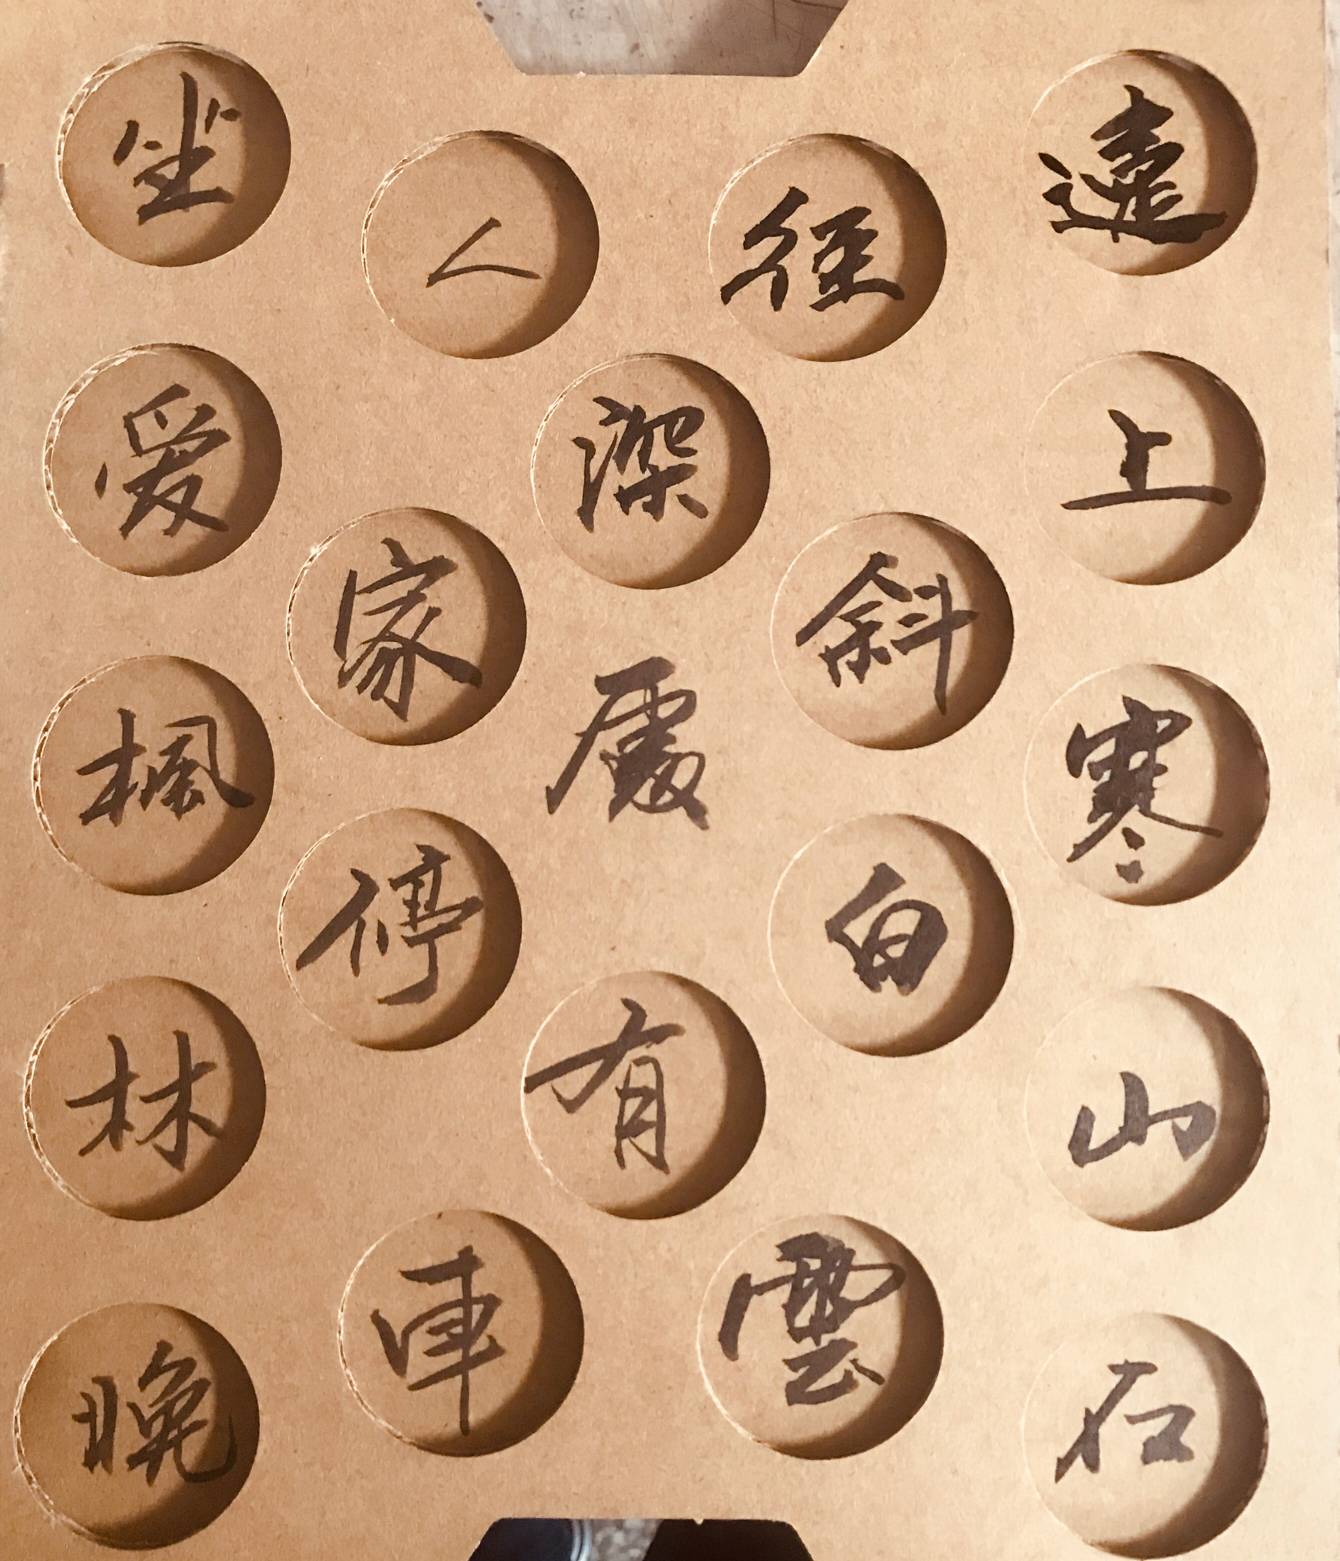 遠上寒山石
径斜白雲
深處有
人家停車
坐爱楓林晚